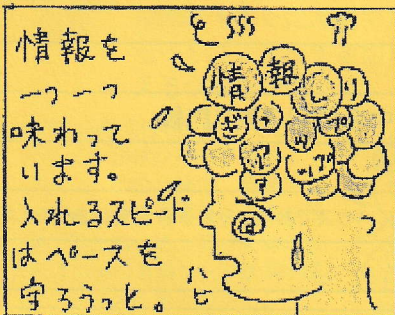 情報を
一つ一つ
味わって
います。
入れるスピード
はペースを
守ろうっと。
ハピ
情報